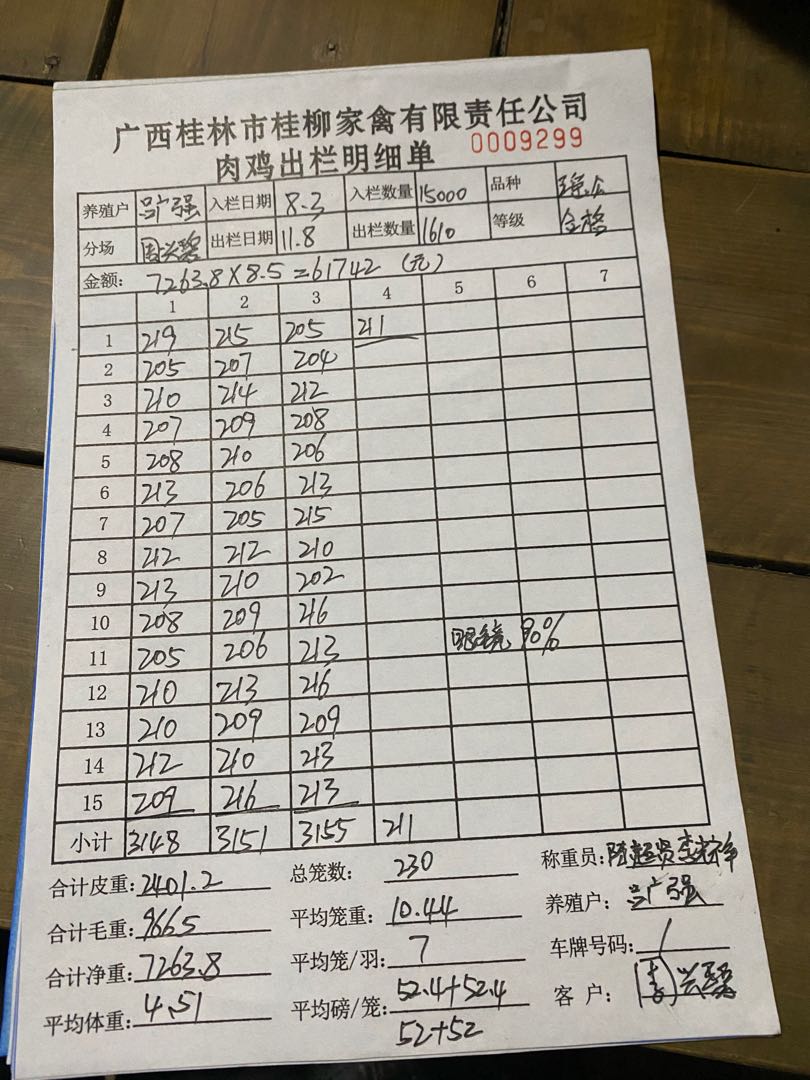 广西桂林市桂柳家禽有限责任公司
肉鸡出栏明细单 0009299
养殖户 吕广强 入栏日期 8.3 入栏数量 15000 品种
分场 周兴碧 出栏日期 11.8 出栏数量 1610 等级 合格
金额: 7263.8×8.5=61742 (元)
1 2 3 4 5 6 7
1 219 215 205 211
2 205 207 204
3 210 214 212
4 207 209 208
5 208 210 206
6 213 206 213
7 207 205 215
8 212 212 210
9 213 210 202
10 208 209 216
眼镜 90%
11 205 206 213
12 210 213 216
13 210 209 209
14 212 210 213
15 209 216 213
小计 3148 3151 3155 211
合计皮重: 2401.2 总笼数: 230 称重员:
合计毛重: 9665 平均笼重: 10.44 养殖户: 吕广强
合计净重: 7263.8 平均笼/羽: 7 车牌号码: /
平均体重: 4.51 平均磅/笼: 52.4+52.4 客户:
52+52